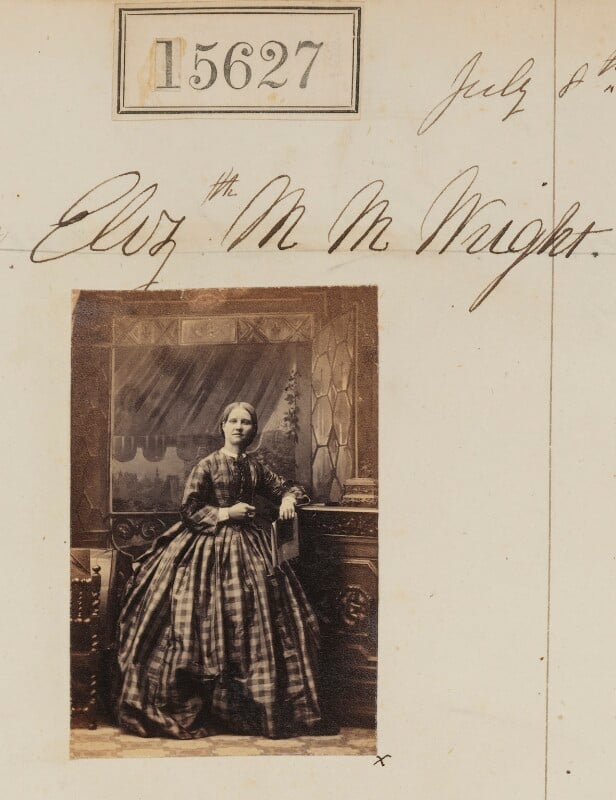 15627
July 8th
Elizth M M Wright.
x